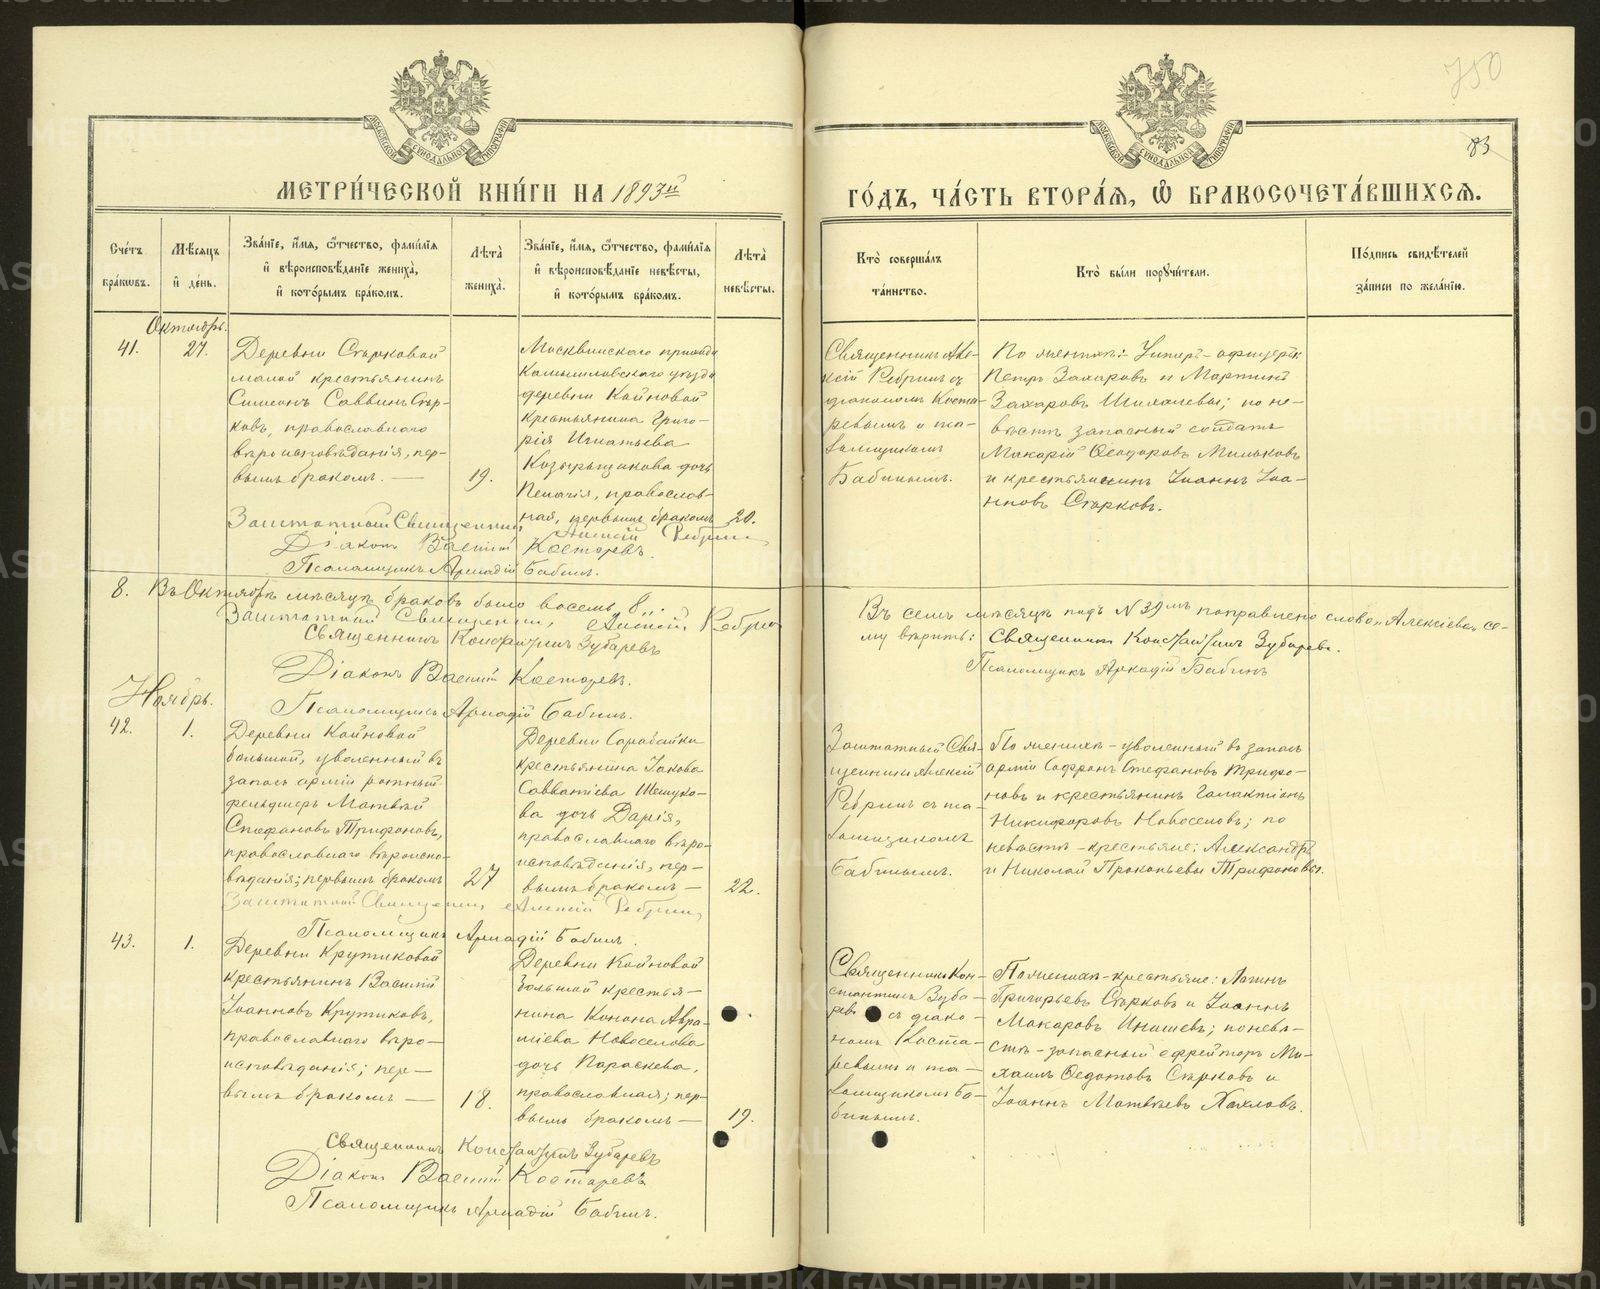 750
83
МОСКОВСКОЙ СУНОДАЛЬНОЙ ТИПОГРАФІИ
МОСКОВСКОЙ СУНОДАЛЬНОЙ ТИПОГРАФІИ
МЕТРИ́ЧЕСКОЙ КНИ́ГИ НА 1893й
ГО́ДЪ, ЧА́СТЬ ВТОРА́Я, Ѿ БРАКОСОЧЕТА́ВШИХСЯ.
Сче́тъ
бра́кѡвъ.
Мѣ́сяцъ
и҆ де́нь.
Зва́нїе, и҆́мя, ѻ҆́тчество, фами́лїя
и҆ вѣроисповѣ́данїе жениха̀,
и҆ кото́рымъ бра́комъ.
Лѣта̀
жениха̀.
Зва́нїе, и҆́мя, ѻ҆́тчество, фами́лїя
и҆ вѣроисповѣ́данїе невѣ́сты,
и҆ кото́рымъ бра́комъ.
Лѣта̀
невѣ́сты.
Кто̀ соверша́лъ
та́инство.
Кто̀ бы́ли порꙋчи́тели.
По́дпись свидѣ́телей
за́писи по жела́нїю.
Октябрь.
41.
27.
Деревни Старковой
малой крестьянинъ
Симеонъ Саввинъ Стар-
ковъ, православнаго
вѣроисповѣданія, пер-
вымъ бракомъ. —
19.
Москвинскаго прихода
Камышловскаго уѣзда
деревни Койновой
крестьянина Григо-
рія Игнатьева
Козырьщикова дочь
Пелагія, православ-
ная, первымъ бракомъ
20.
Священникъ Але-
ксій Ребринъ съ
діакономъ Коста-
ревымъ и пса-
ломщикомъ
Бабинымъ.
По женихѣ: Унтеръ-офицеръ
Петръ Захаровъ и Мартинъ
Захаровъ Шихалевы; по не-
вѣстѣ запасный солдатъ
Макарій Ѳеодоровъ Мильковъ
и крестьянинъ Іоаннъ Іоа-
нновъ Старковъ.
Заштатный Священникъ Алексій Ребринъ
Діаконъ Василій Костаревъ.
Псаломщикъ Аркадій Бабинъ.
8. Въ Октябрѣ мѣсяцѣ браковъ было восемь „8„.
Заштатный Священникъ Алексій Ребринъ
Священникъ Константинъ Зубаревъ
Діаконъ Василій Костаревъ.
Псаломщикъ Аркадій Бабинъ.
Въ семъ мѣсяцѣ подъ N 39мъ поправлено слово „Алексіева„ се-
му вѣрить: Священникъ Константинъ Зубаревъ.
Псаломщикъ Аркадій Бабинъ
Ноябрь.
42.
1.
Деревни Койновой
большой, уволенный въ
запасъ арміи ротный
фельдшеръ Матвѣй
Стефановъ Трифоновъ,
православнаго вѣроиспо-
вѣданія; первымъ бракомъ
27
Деревни Сарабайки
крестьянина Іакова
Савватіева Шешуко-
ва дочь Дарія,
православнаго вѣро-
исповѣданія, пер-
вымъ бракомъ —
22.
Заштатный Свя-
щенникъ Алексій
Ребринъ съ пса-
ломщикомъ
Бабинымъ.
По женихѣ — уволенный въ запасъ
арміи Софронъ Стефановъ Трифо-
новъ и крестьянинъ Галактіонъ
Никифоровъ Новоселовъ; по
невѣстѣ — крестьяне: Александръ
и Николай Прокопьевы Трифоновы.
Заштатный Священникъ Алексій Ребринъ
Псаломщикъ Аркадій Бабинъ.
43.
1.
Деревни Крутиковой
крестьянинъ Василій
Іоанновъ Крутиковъ,
православнаго вѣро-
исповѣданія; пер-
вымъ бракомъ —
18.
Деревни Койновой
большой крестья-
нина Конона Авра-
міева Новоселова
дочь Параскева,
православная; пер-
вымъ бракомъ —
19.
Священникъ Кон-
стантинъ Зуба-
ревъ съ діако-
номъ Коста-
ревымъ и пса-
ломщикомъ Ба-
бинымъ.
По женихѣ — крестьяне: Логинъ
Григорьевъ Старковъ и Іоаннъ
Макаровъ Инишевъ; по невѣ-
стѣ — запасный ефрейторъ Ми-
хаилъ Ѳедотовъ Старковъ и
Іоаннъ Матвѣевъ Хохловъ.
Священникъ Константинъ Зубаревъ
Діаконъ Василій Костаревъ
Псаломщикъ Аркадій Бабинъ.